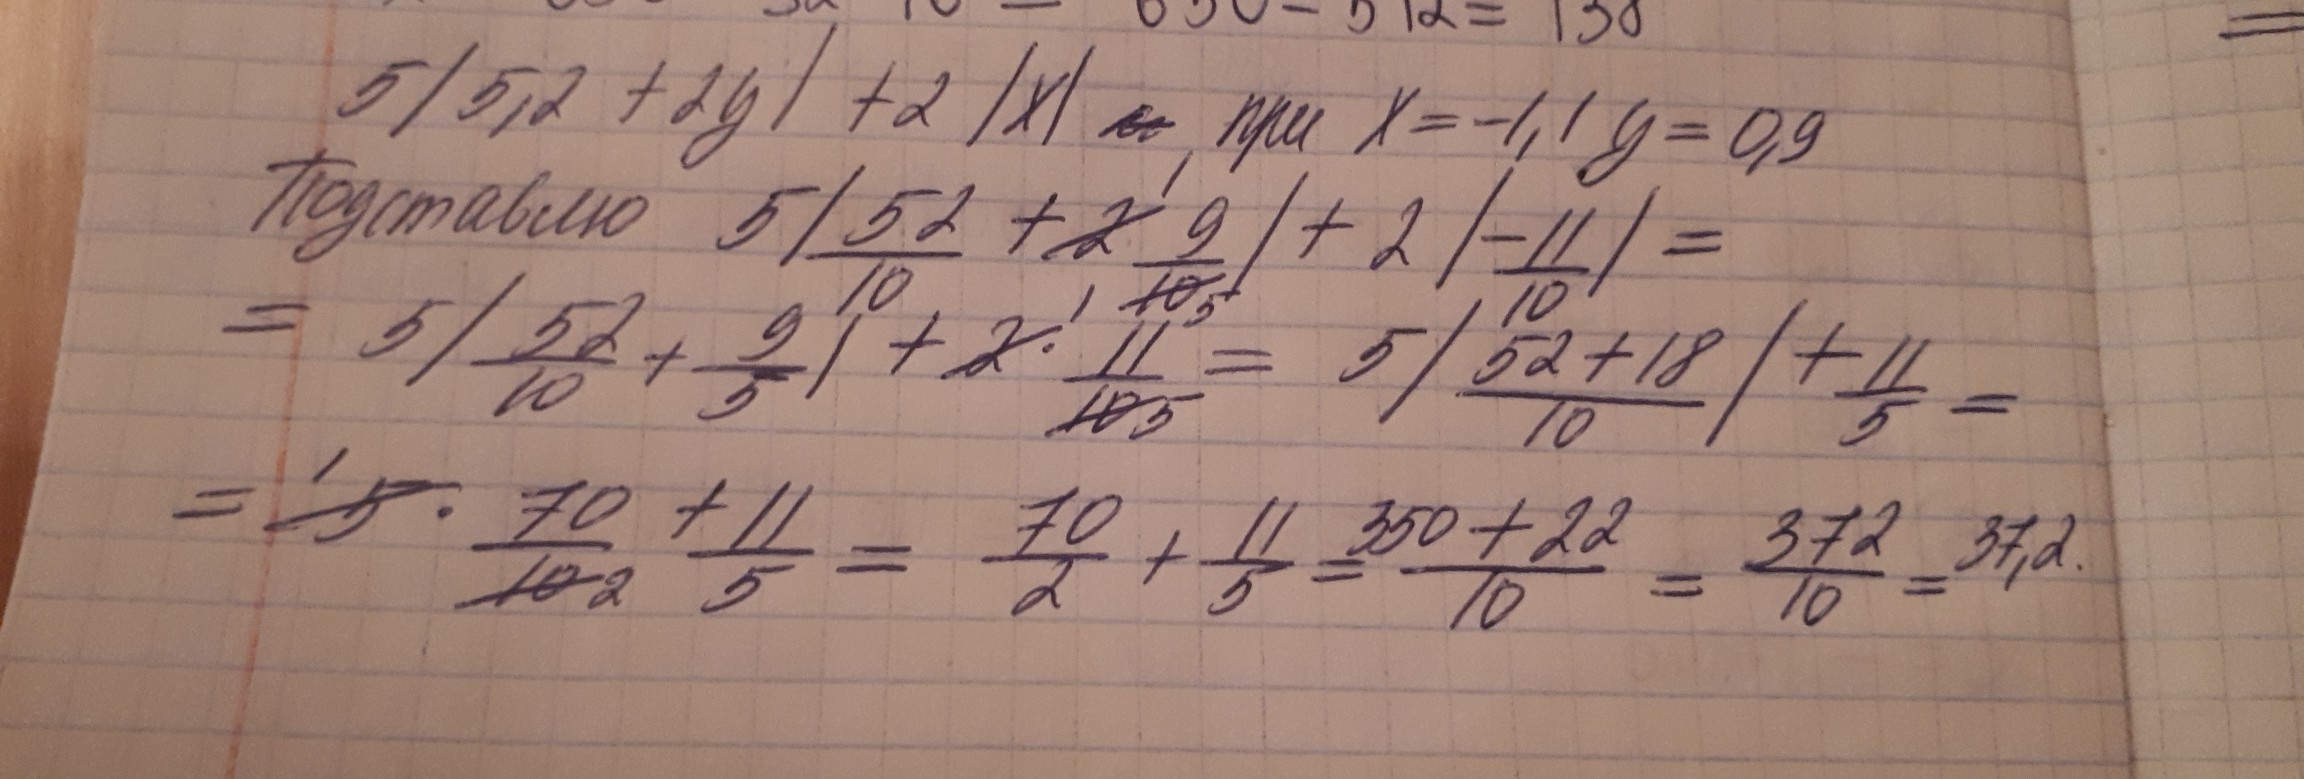 650 - 512 = 138
5|5,2 + 2y| + 2|x|, при x = -1,1 y = 0,9
Подставлю 5|52/10 + 2 9/10| + 2|-11/10| =
= 5|52/10 + 9/5| + 2 · 11/10 = 5|(52+18)/10| + 11/5 =
= 5 · 70/10 + 11/5 = 70/2 + 11/5 = (350+22)/10 = 372/10 = 37,2.